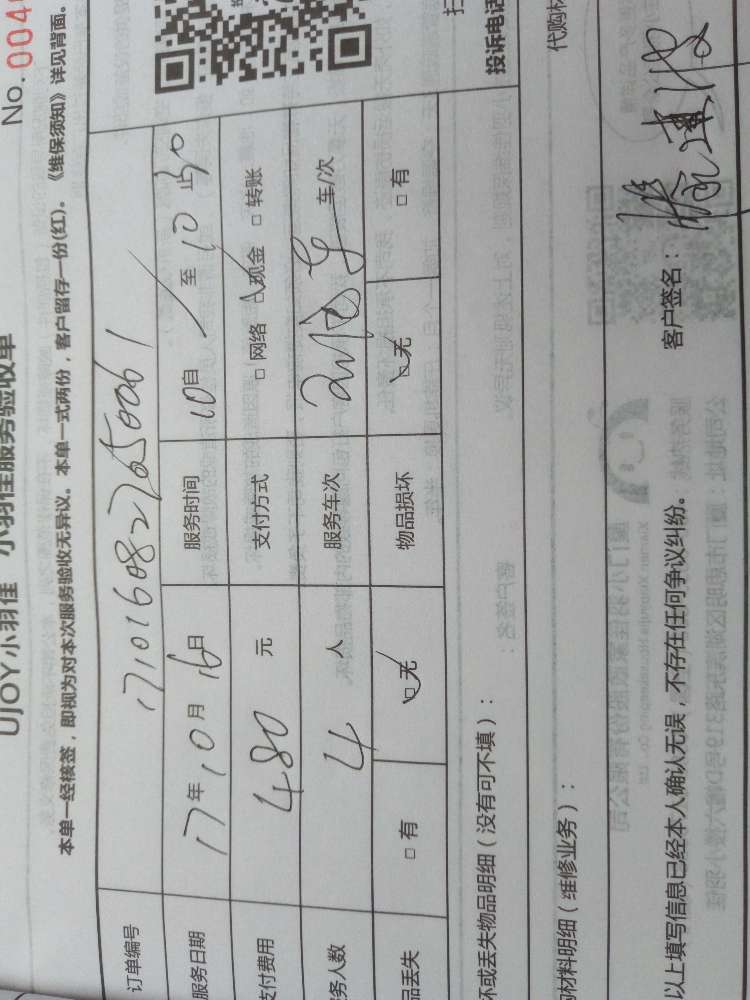 No.004
UJOY小羽佳 小羽佳服务验收单
本单一经核签，即视为对本次服务验收无异议。本单一式两份，客户留存一份(红)。《维保须知》详见背面。
订单编号 1710160827650061
服务日期 17年10月16日 服务时间 10自 至 10 止30
支付费用 480 元 支付方式 □ 网络 □ 现金 □ 转账
务人数 4 人 服务车次 车/次
品丢失 □ 有 □ 无 物品损坏 □ 无 □ 有
投诉电话
坏或丢失物品明细（没有可不填）：
材料明细（维修业务）：
代购材
以上填写信息已经本人确认无误，不存在任何争议纠纷。 客户签名：